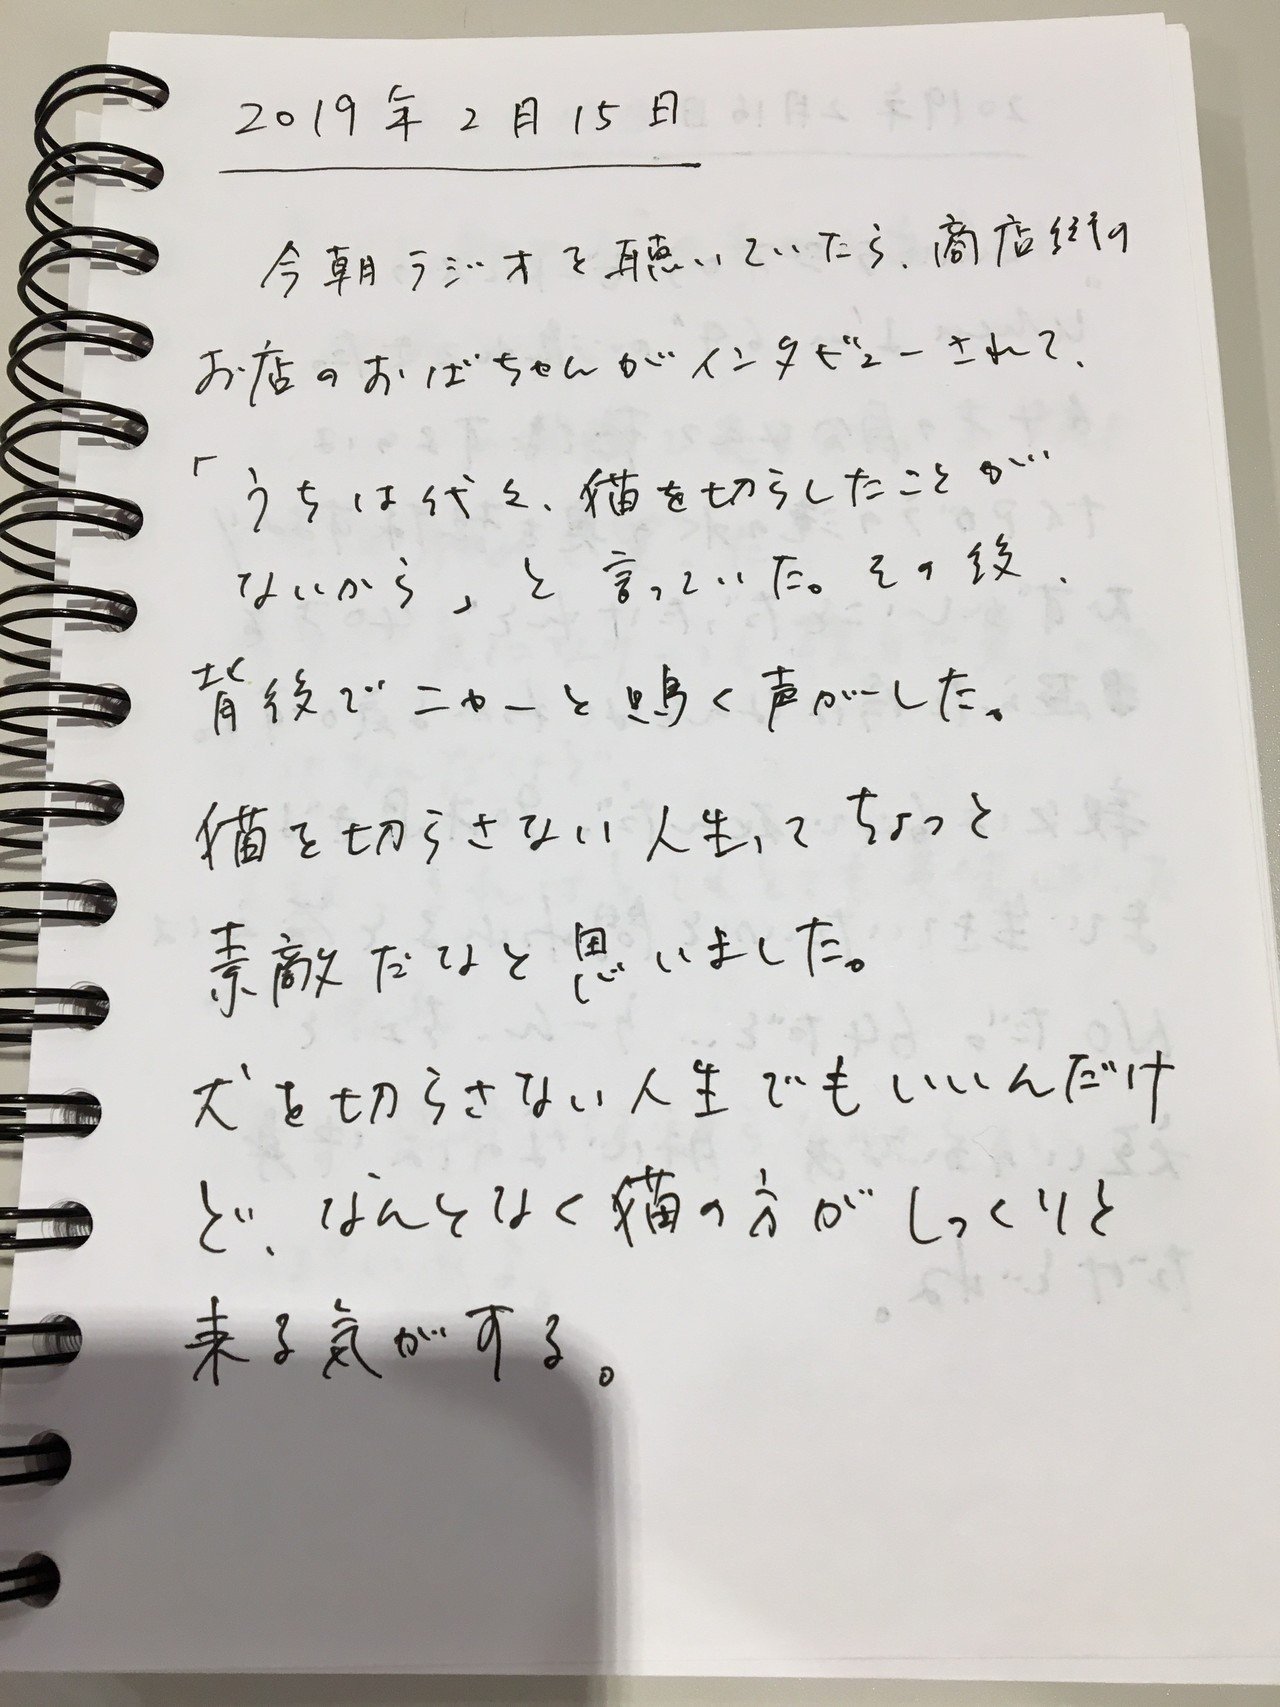 2019年2月15日
今朝ラジオを聴いていたら、商店街の
お店のおばちゃんがインタビューされて、
「うちは代々、猫を切らしたことが
ないから」と言っていた。その後、
背後でニャーと鳴く声がーした。
猫を切らさない人生ってちょっと
素敵だなと思いました。
犬を切らさない人生でもいいんだけ
ど、なんとなく猫の方がしっくりと
来る気がする。